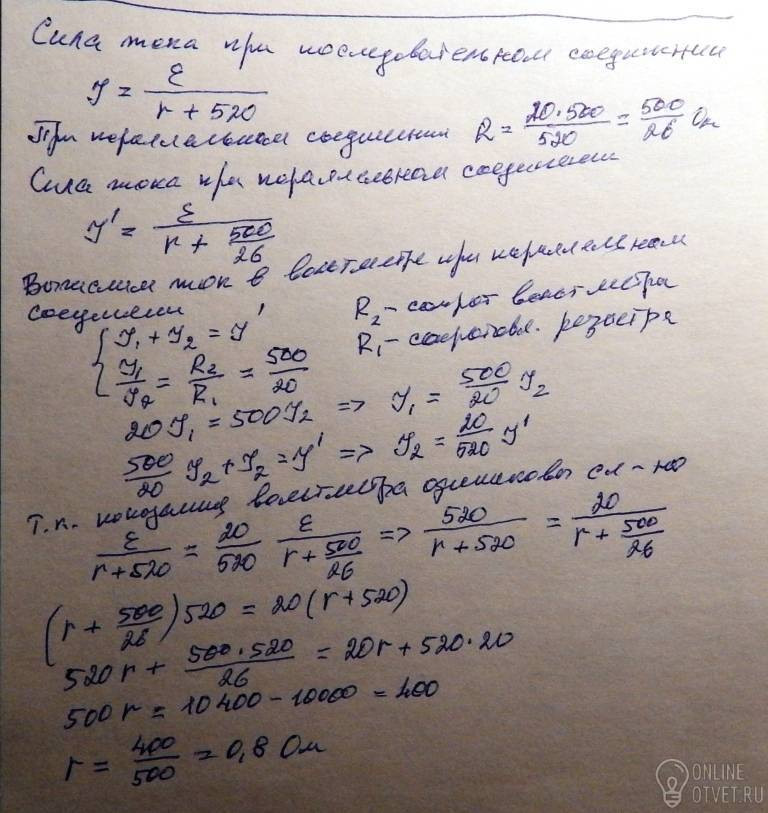 Сила тока при последовательном соединении
J = ε / (r + 520)
При пораллельном соединении R = 20·500 / 520 = 500 / 26 Ом
Сила тока при пораллельном соединении
J' = ε / (r + 500/26)
Вычислим ток в вольтметре при параллельном
соединении
R₂ - сопрот вольтметра
{ J₁ + J₂ = J'
R₁ - сопротовл. резистра
J₁/J₂ = R₂/R₁ = 500/20
20 J₁ = 500 J₂ => J₁ = 500/20 J₂
500/20 J₂ + J₂ = J' => J₂ = 20/520 J'
Т.к. показания вольтметра одинаковы сл-но
ε/(r+520) = 20/520 ε/(r + 500/26) => 520/(r+520) = 20/(r + 500/26)
(r + 500/26) 520 = 20 (r + 520)
520 r + 500·520/26 = 20r + 520·20
500 r = 10400 - 10000 = 400
r = 400/500 = 0,8 Ом
ONLINE
OTVET.RU